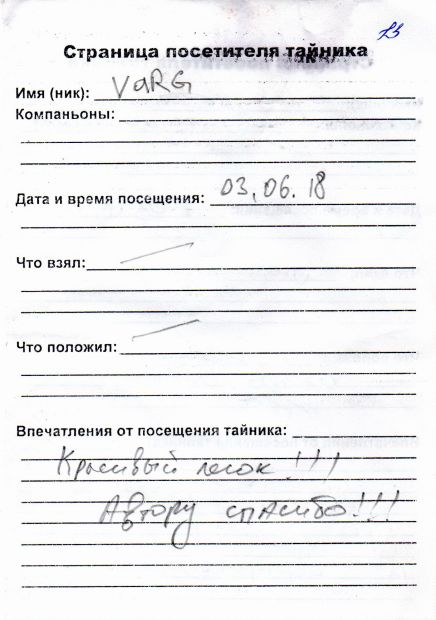 23
Страница посетителя тайника
Имя (ник): VaRG
Компаньоны:
Дата и время посещения: 03.06.18
Что взял:
Что положил:
Впечатления от посещения тайника:
Красивый лесок!!!
Автору спасибо!!!